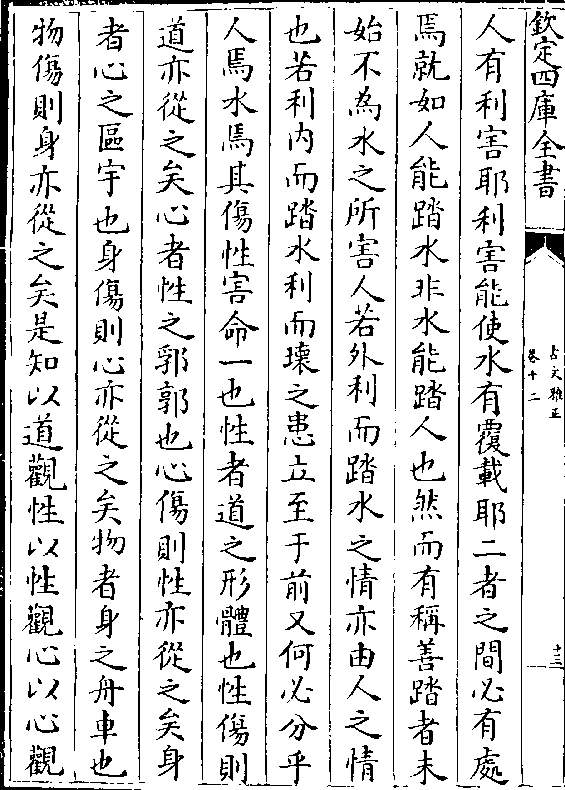 欽定四庫全書
古文雅正
卷十二
十三
人有利害耶利害能使水有覆載耶二者之間必有處
焉就如人能踏水非水能踏人也然而有稱善踏者未
始不為水之所害人若外利而踏水之情亦由人之情
也若利內而踏水利而壞之患立至于前又何必分乎
人焉水焉其傷性害命一也性者道之形體也性傷則
道亦從之矣心者性之郛郭也心傷則性亦從之矣身
者心之區宇也身傷則心亦從之矣物者身之舟車也
物傷則身亦從之矣是知以道觀性以性觀心以心觀